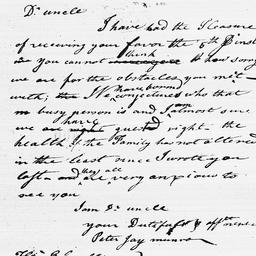 Dr. uncle
I have had the Pleasure
of receiving your favor the 6th Inst
you cannot think how sorry
we are for the obstacles you met
with; We have conjectured who that
busy person is and I am almost sure
we have guessed right – the
health of the Family has not altered
in the least since I wrote you
last – and they all are very anxious to
see you
I am Dr. uncle
your Dutifull & affte nephew
Peter Jay munro